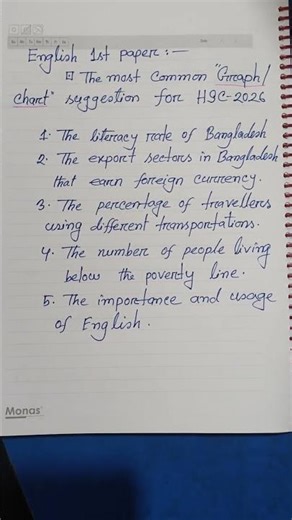 English 1st paper :—
⊡ The most common "Graph/
chart" suggestion for HSC-2026
1. The literacy rate of Bangladesh
2. The export sectors in Bangladesh
that earn foreign currency.
3. The percentage of travellers
using different transportations.
4. The number of people living
below the poverty line.
5. The importance and usage
of English.
Monas